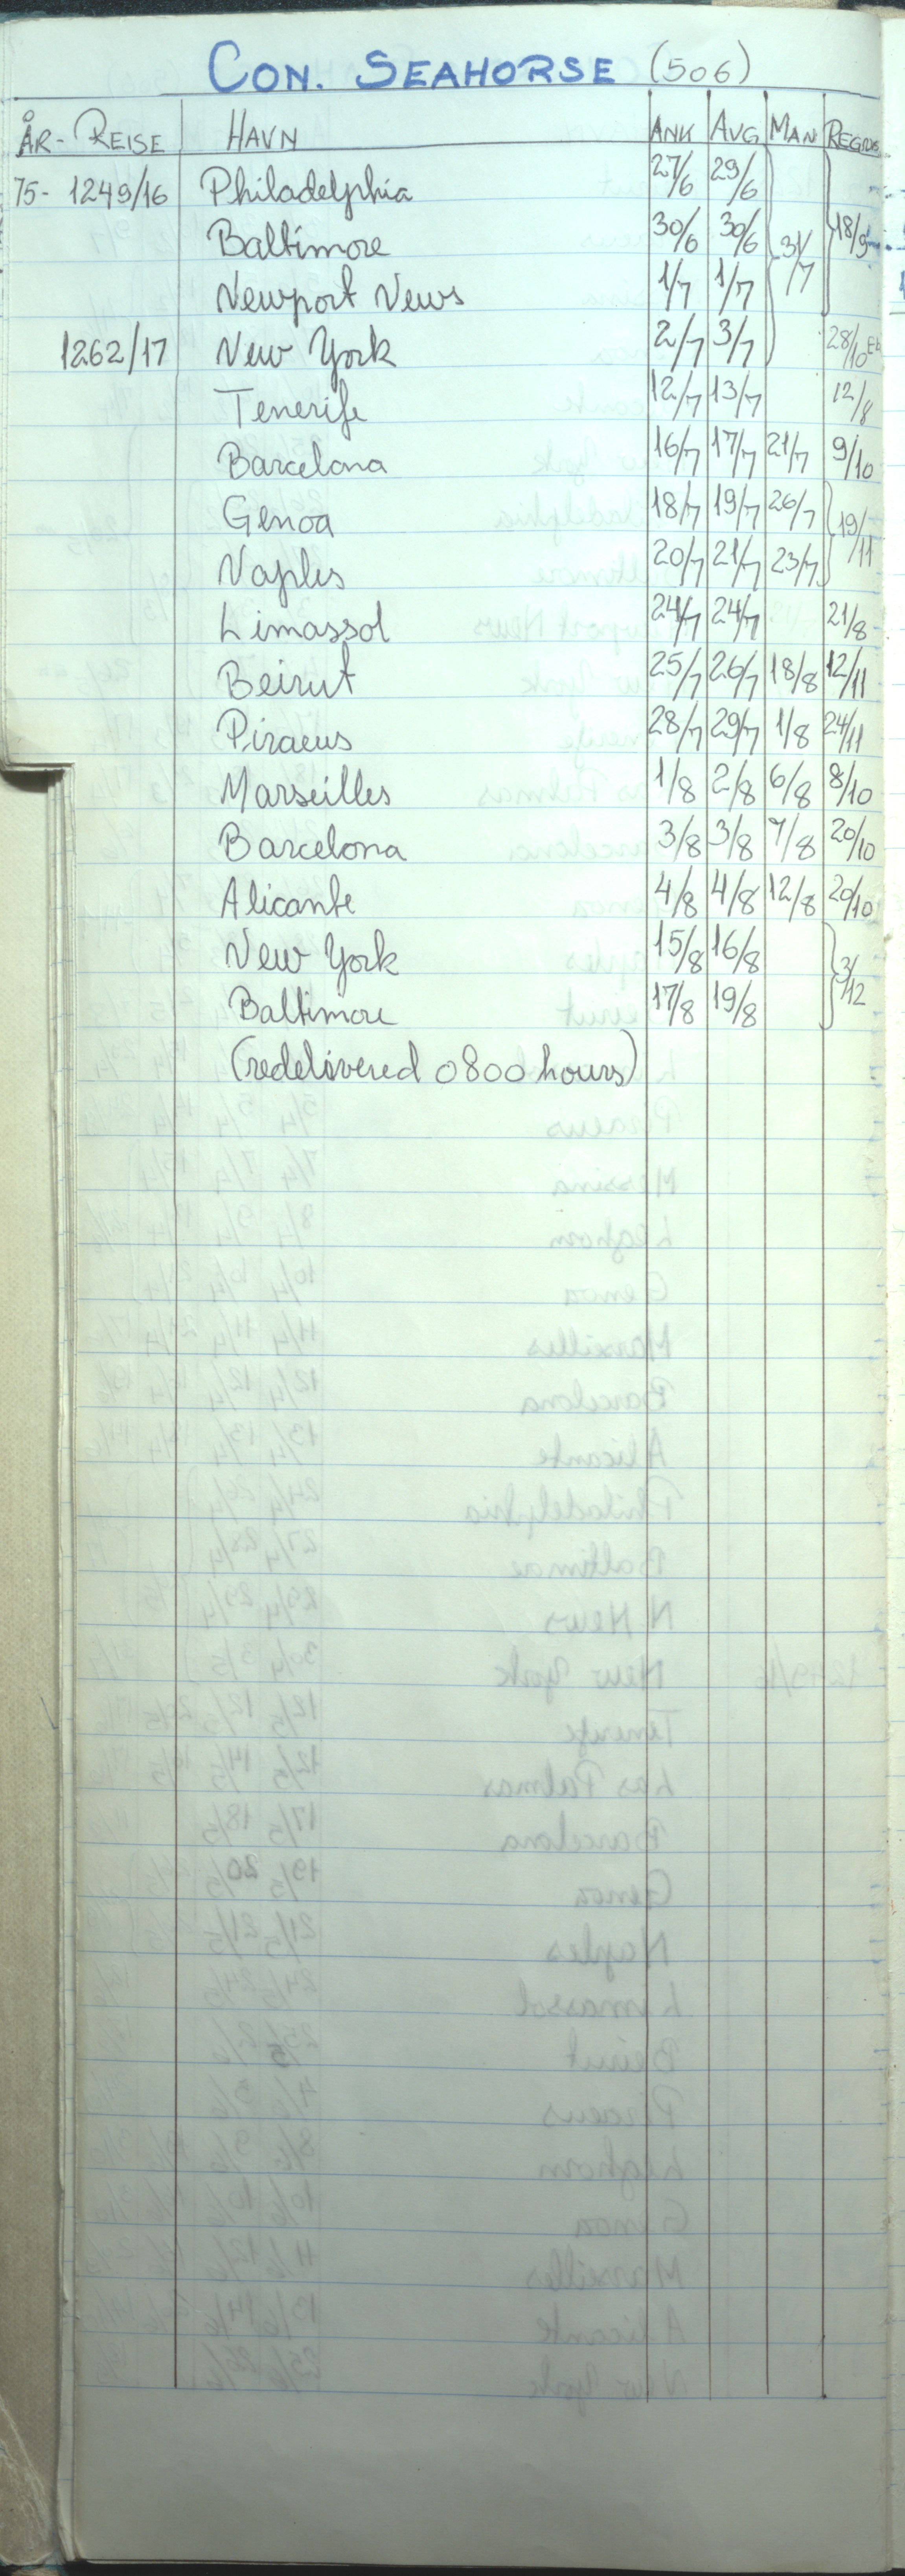 CON. SEAHORSE (506)
ÅR- REISE HAVN ANK AVG MAN REGNS
75- 1249/16 Philadelphia 27/6 29/6
Baltimore 30/6 30/6 31/7 18/9
Newport News 1/7 1/7
1262/17 New York 2/7 3/7 28/10
Tenerife 12/7 13/7 12/8
Barcelona 16/7 17/7 21/7 9/10
Genoa 18/7 19/7 26/7 19/11
Naples 20/7 21/7 23/7
Limassol 24/7 24/7 21/8
Beirut 25/7 26/7 18/8 12/11
Piraeus 28/7 29/7 1/8 24/11
Marseilles 1/8 2/8 6/8 8/10
Barcelona 3/8 3/8 7/8 20/10
Alicante 4/8 4/8 12/8 20/10
New York 15/8 16/8 3/12
Baltimore 17/8 19/8
(redelivered 0800 hours)